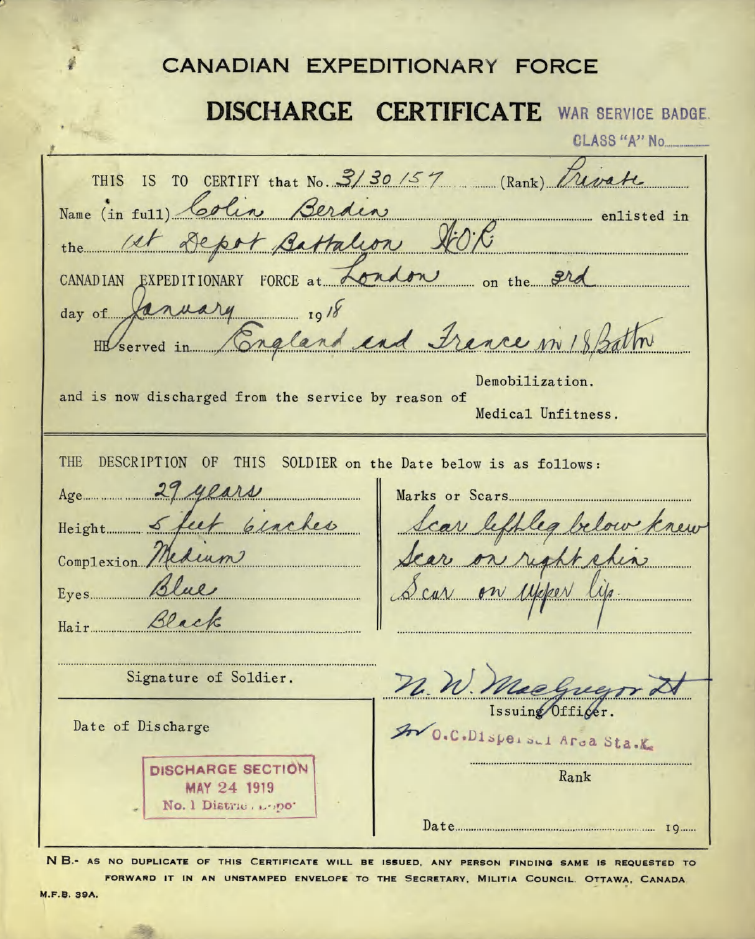 CANADIAN EXPEDITIONARY FORCE
DISCHARGE CERTIFICATE
WAR SERVICE BADGE.
CLASS "A" No.
THIS IS TO CERTIFY that No. 3/30157 (Rank) Private
Name (in full) Colin Berdin enlisted in
the 1st Depot Battalion W.O.R
CANADIAN EXPEDITIONARY FORCE at London on the 3rd
day of January 1918
HE served in England and France in 18 Battn
Demobilization.
and is now discharged from the service by reason of
Medical Unfitness.
THE DESCRIPTION OF THIS SOLDIER on the Date below is as follows:
Age 29 years
Height 5 feet 6 inches
Complexion Medium
Eyes Blue
Hair Black
Marks or Scars
Scar left leg below knew
Scar on right shin
Scar on upper lip.
Signature of Soldier.
N. W. MacGregor Lt
Issuing Officer.
for O.C. Dispersal Area Sta. K
Rank
Date of Discharge
DISCHARGE SECTION
MAY 24 1919
No. 1 District Depot
Date 19
N B.- AS NO DUPLICATE OF THIS CERTIFICATE WILL BE ISSUED, ANY PERSON FINDING SAME IS REQUESTED TO
FORWARD IT IN AN UNSTAMPED ENVELOPE TO THE SECRETARY, MILITIA COUNCIL. OTTAWA, CANADA
M.F.B. 39A.